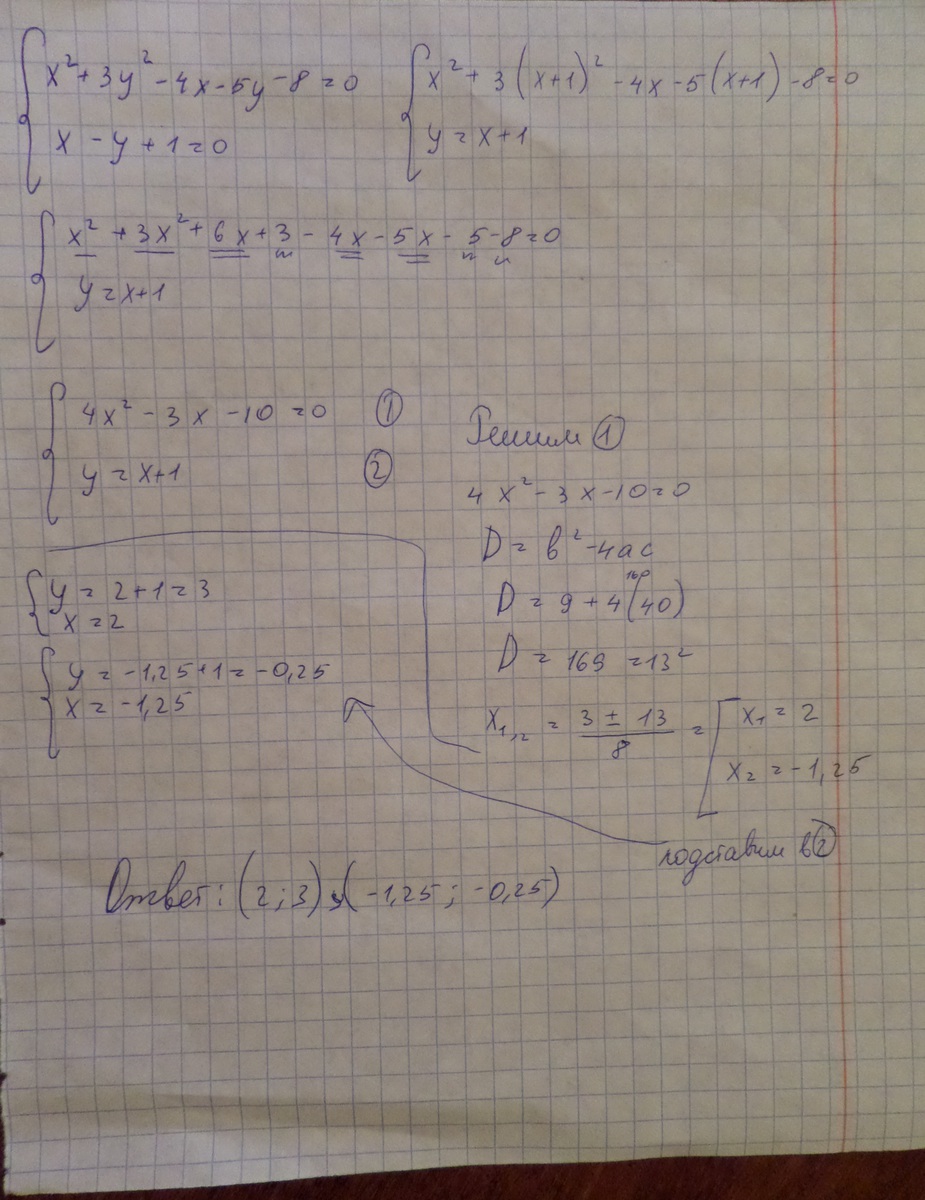 x² + 3y² - 4x - 5y - 8 = 0
x - y + 1 = 0
x² + 3(x+1)² - 4x - 5(x+1) - 8 = 0
y = x + 1
x² + 3x² + 6x + 3 - 4x - 5x - 5 - 8 = 0
y = x+1
4x² - 3x - 10 = 0 ①
y = x+1 ②
Решим ①
4x² - 3x - 10 = 0
D = b² - 4ac
160
D = 9 + 4(40)
D = 169 = 13²
x₁,₂ = (3 ± 13)/8 = [x₁ = 2
x₂ = -1,25
подставим в ②
y = 2+1 = 3
x = 2
y = -1,25+1 = -0,25
x = -1,25
Ответ: (2; 3) (-1,25; -0,25)